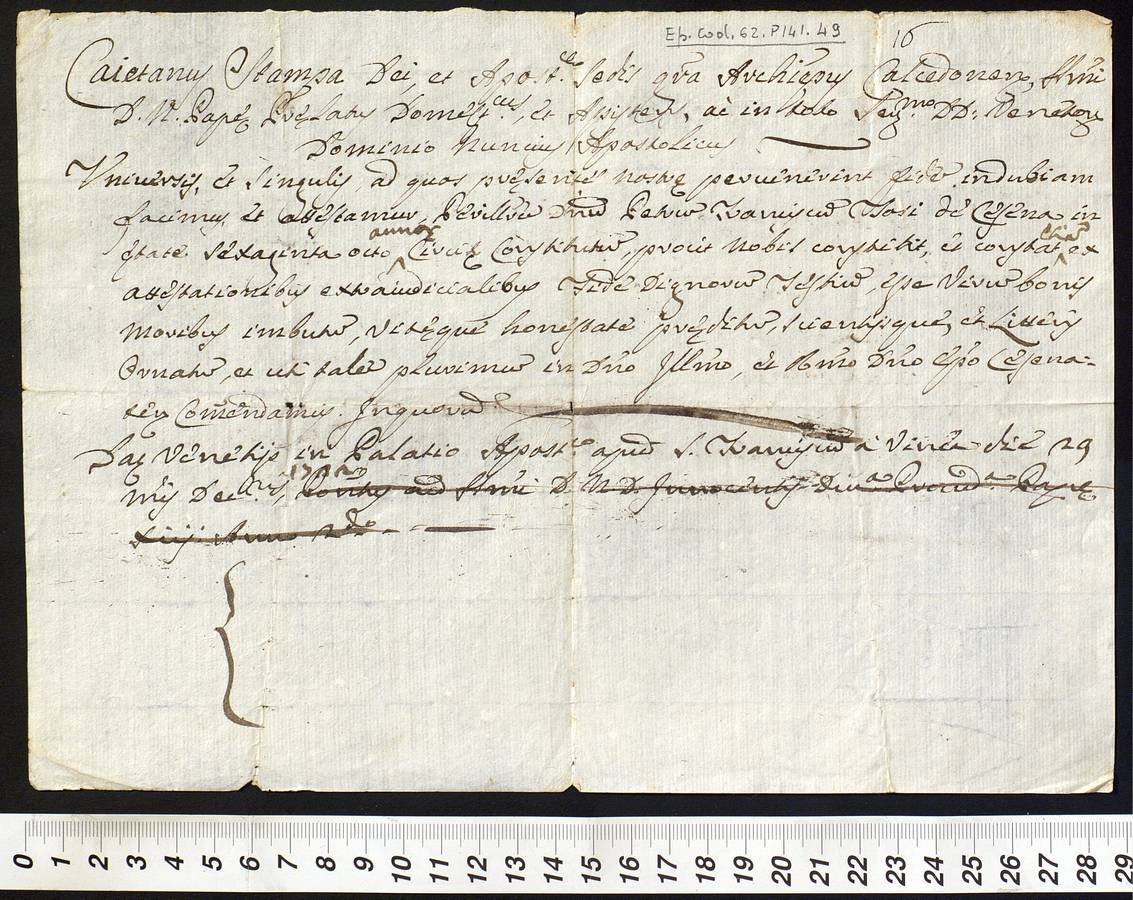 Ep. Cod. 62. P141. 49
16
Caietanus Stampa Dei, et Apost.cae Sedis gra Archiepus Calcedonen, Smi
D. N. Papę Pręlatus Domest.cus, et Assistens, ac in toto Ser.mo DD: Venetor
Dominio Nuncius Apostolicus
Universis, et Singulis, ad quos pręsentes nostrę pervenerint fidē indubiam
facimus, et attestamur, Perillrē Dnū Petrū Franciscū Tosi de Cesena in
ętate sexaginta octo annor Circiter Constitutū, prout nobis constitit, et constat etiā ex
attestationibus extraiudicialibus Fide Dignorū Testiū, esse Virū bonis
Moribus imbutū, Vitęque honestate pręditū, scientijsque, et Litteris
Ornatū, et uti talē plurimū in Dno Illmo, et Rmo Dno Epo Cesena-
ten Comendamus. In quorū
Dat Venetijs in Palatio Apost.co apud S. Franciscū a Vinea die 29
Mis Decbris, 1722 Pontus aūd Smi D. N. D. Innocentij Divā Provid.a Papę
xiij Anno 2do